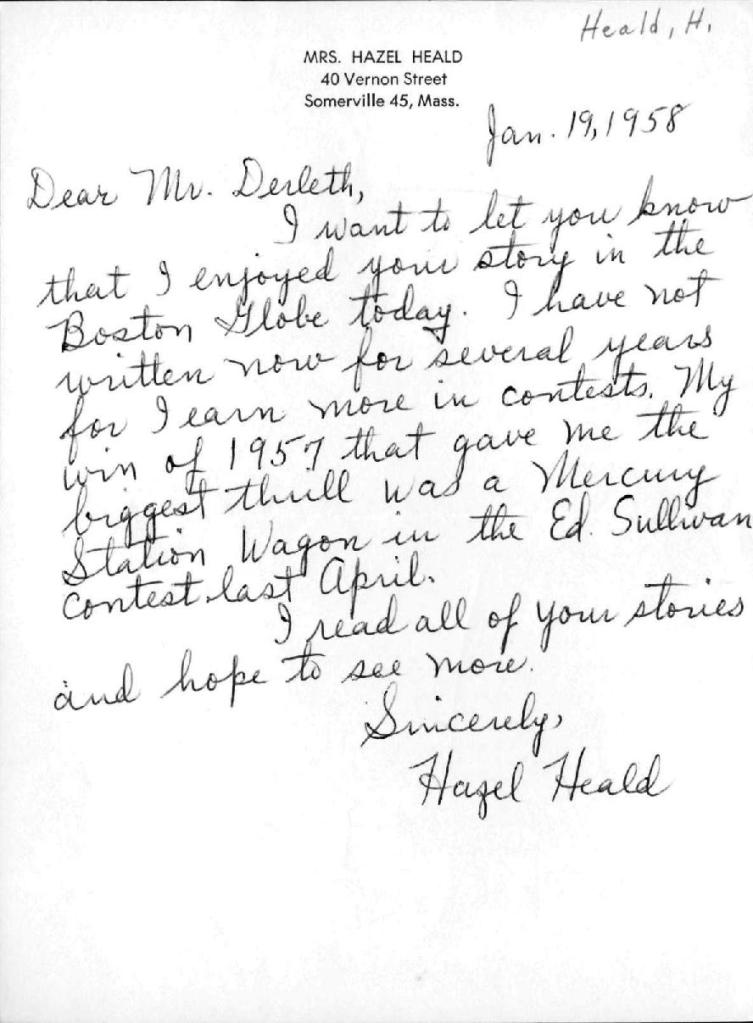 Heald, H.
MRS. HAZEL HEALD
40 Vernon Street
Somerville 45, Mass.
Jan. 19, 1958
Dear Mr. Derleth,
I want to let you know
that I enjoyed your story in the
Boston Globe today. I have not
written now for several years
for I earn more in contests. My
win of 1957 that gave me the
biggest thrill was a Mercury
Station Wagon in the Ed. Sullivan
contest last April.
I read all of your stories
and hope to see more.
Sincerely,
Hazel Heald